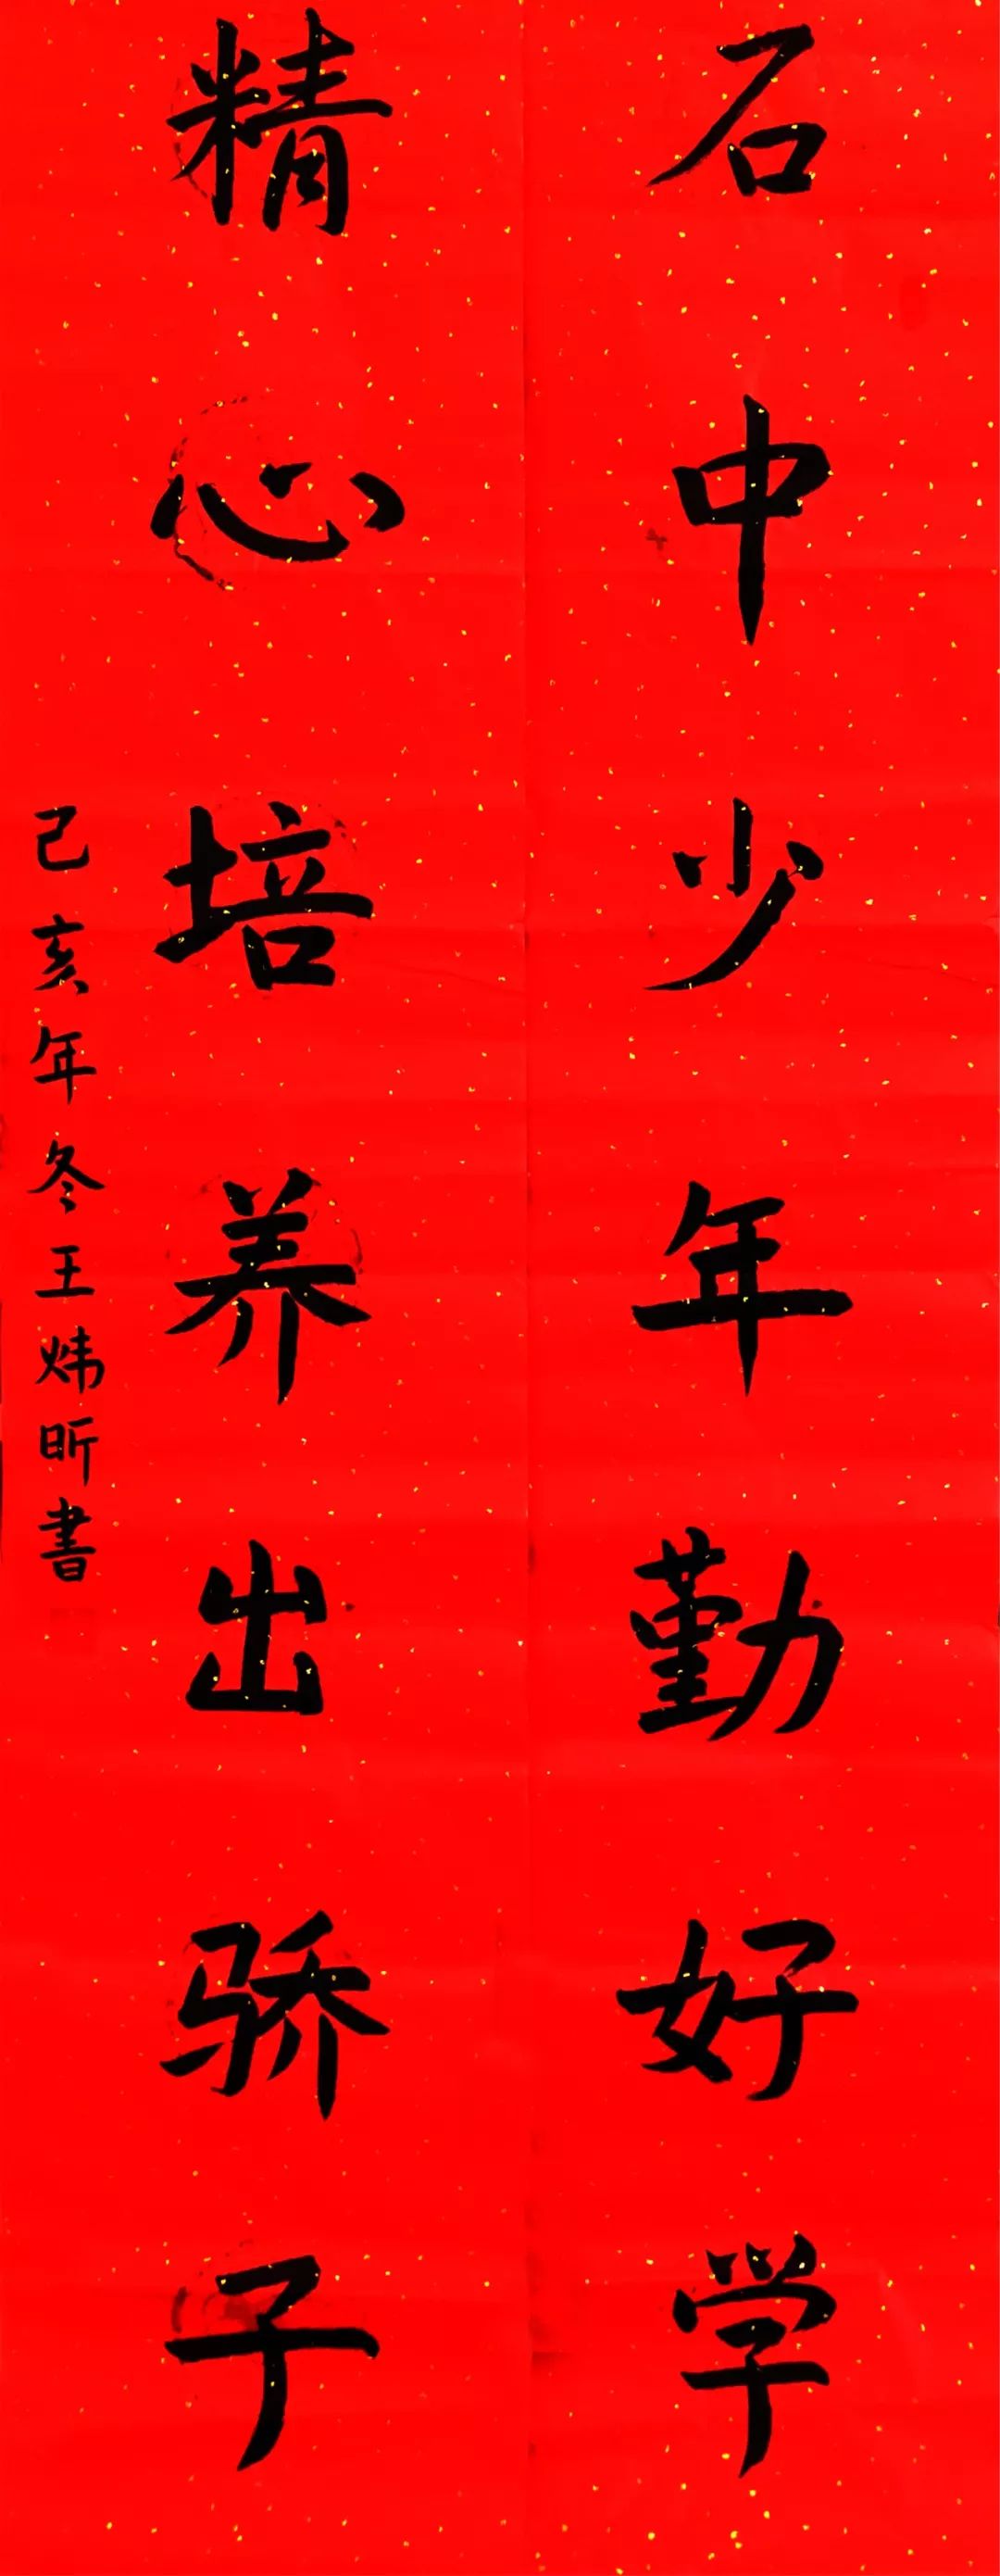 石中少年勤好学
精心培养出骄子
己亥年冬王炜昕書